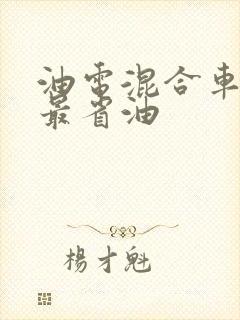 油電混合車
最省油
楊才魁